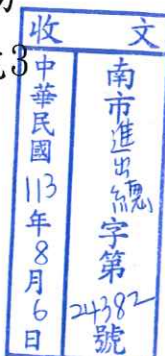 收文
中華民國113年8月6日
南市進出總字第24382號
3